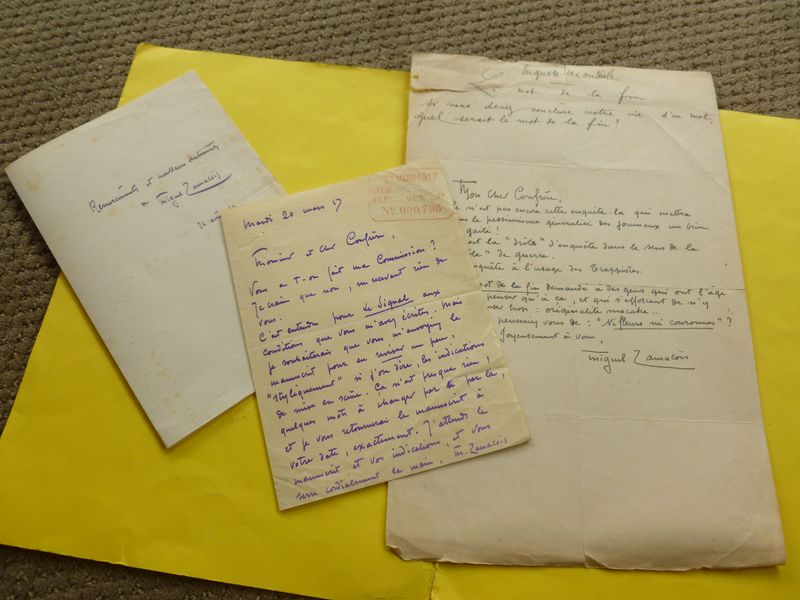 Remerciements et meilleurs
Miguel Zamacoïs
21 MARS 1917
No 000,796
Mardi 20 mars 17
Monsieur et cher Confrère,
Vous a t-on fait ma Commission?
Je crains que non, ne recevant rien de
vous.
C'est entendu pour Le Signal aux
conditions que vous m'avez écrites. Mais
je souhaiterais que vous m'envoyiez le
manuscrit pour en reviser un peu,
"styliquement" si j'ose dire, les indications
de mise en scène. Ça n'est presque rien,
quelques mots à changer par ci par là,
et je vous retournerai le manuscrit à
votre date, exactement. J'attends le
manuscrit et vos indications, et vous
serre cordialement la main, M. Zamacoïs
Enquête Mondiale
mot de la fin
si vous deviez conclure votre vie d'un mot,
quel serait le mot de la fin?
Mon Cher Confrère,
n'est pas encore cette enquête-là qui mettra
le pessimisme généralisé des journaux un brin
gaîté!
est la "drôle" d'enquête dans le sens de la
de guerre.
enquête à l'usage des Trappistes.
mot de la fin demandé à des gens qui ont l'âge
penser qu'à ça, et qui s'efforcent de n'y
trop: originalité macabre...
pensez vous de: "Ni fleurs ni couronnes"?
Joyeusement à vous,
Miguel Zamacoïs